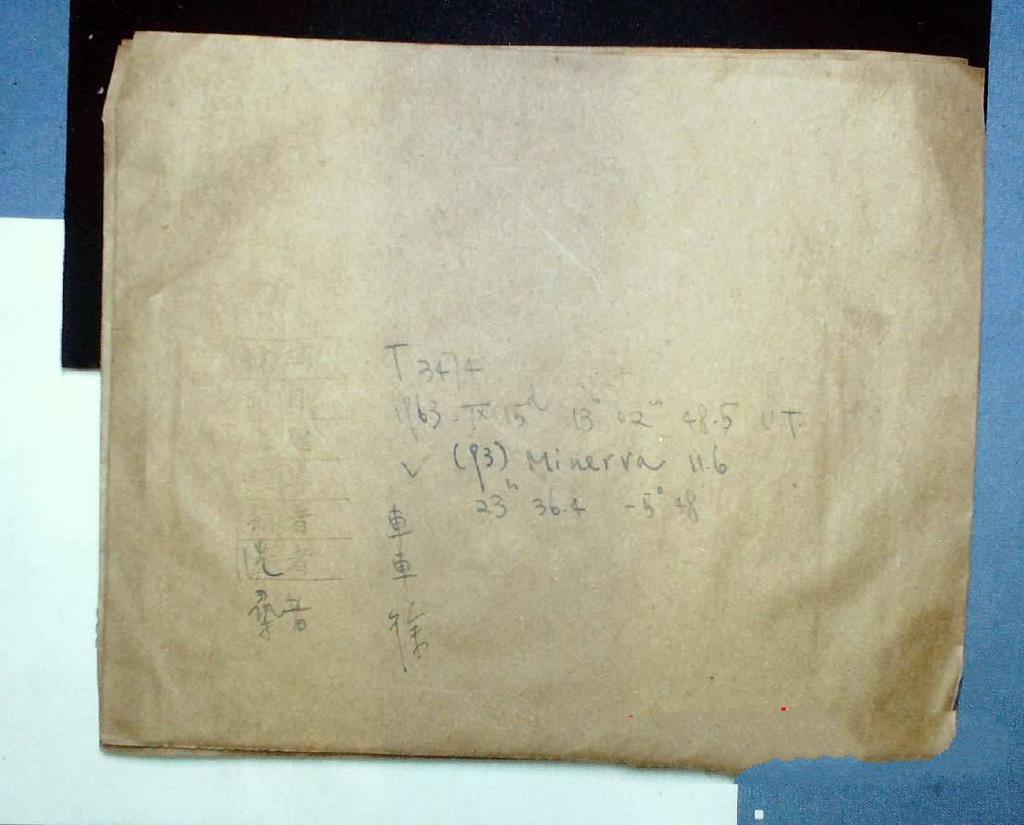 T 3474
1963. IX 15d 13h 02m 48.5 UT.
✓ (93) Minerva 11.6
23h 36.4 -5° 48
者 車
洗者 車
者 徐